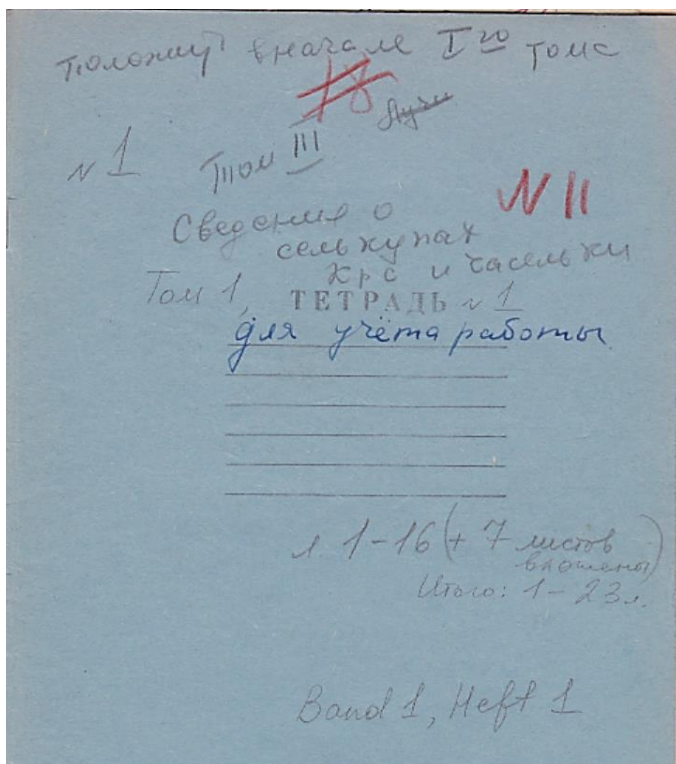 Положить вначале I го тома
18
№ 1
Том III
№ 11
Сведения о
селькупах
Крс и Часельки
Том 1, ТЕТРАДЬ № 1
для учёта работы
л 1-16 (+ 7 листов
вложены)
Итого: 1-23 л.
Band 1, Heft 1